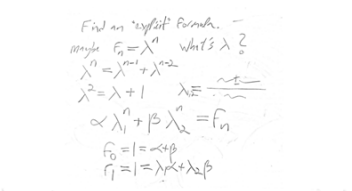 Find an "explicit" formula. –
maybe Fₙ = λⁿ what's λ ?
λⁿ = λⁿ⁻¹ + λⁿ⁻²
λ² = λ + 1 λ =
α λ₁ⁿ + β λ₂ⁿ = Fₙ
F₀ = 1 = α + β
F₁ = 1 = λ₁α + λ₂β